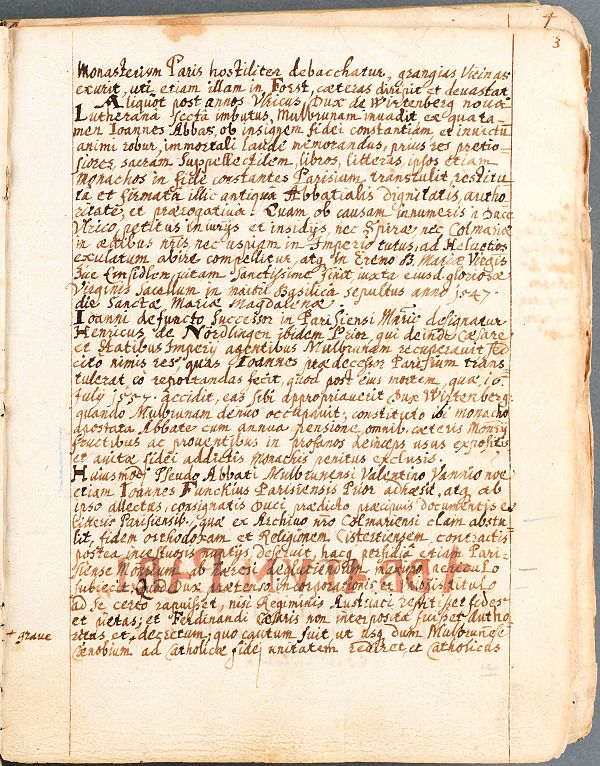 4
3
Monasterium Paris hostiliter debacchatur, grangias Vicinas
exurit, uti etiam illam in Forst, cæteras diripit et devastat
Aliquot post annos Ulricus Dux de Wirtenberg nova
Lutherana secta imbutus, Mulbrunam invadit ex qua ta-
men Ioannes Abbas, ob insignem fidei constantiam, et invictu
animi robur, immortali laude memorandus, prius res pretio-
siores, sacram suppellectilem, libros, litteras, ipsos etiam
monachos in fide constantes Parisium transtulit, restitu
ta et firmata illic antiquâ Abbatialis dignitatis, autho-
ritate, et prærogativa. Quam ob causam innumeris a Duce
Ulrico petitus iniurijs et insidijs, nec Spiræ, nec Colmariæ
in ædibus nris nec uspiam in Imperio tutus, ad Helvetios
exulatum abire compellitur, atq in Eremo B. Mariæ Virgis
Zue Einsidlen, vitam Sanctissime finit iuxta eiusd gloriosæ
Virginis Sacellum in maiori Basilica sepultus anno 1547
die Sanctæ Mariæ Magdalenæ.
Ioanni defuncto Successor in Parisiensi Mario designatur
Henricus de Nördlingen ibidem Prior, qui deinde Cæsare
et Statibus Imperij agentibus Mulbrunam recuperavit sed
cito nimis res, quas Ioannes prædecessor Parisium trans
tulerat eo reportandas fecit, quod post eius mortem, quæ 10
July 1557. accidit, eas sibi appropriaverit Dux Wirtenberg:
quando Mulbrunam denuo occupavit, constituto ibi monacho
apostata Abbate cum annua pensione, omnib. cæteris Monrÿ
fructibus ac proventibus in profanos deinceps usus expositis
et avitæ fidei addictis monachis penitus exclusis.
Huiusmodi Pseudo Abbati Mulbrunensi Valentino Vannio noe
etiam Ioannes Funckius Parisiensis Prior adhæsit, atq ab
ipso allectus, consignatis Duci prædicto præcipuis documentis e
litteris Parisiensib. quæ ex Archivo nro Colmariensi clam abstu
lit, fidem orthodoxam et Religionem Cisterciensem, contractis
postea incestuosis nuptijs, deseruit, hacq perfidia etiam Pari-
siense Monrium ab hæresi depascendum, maximo periculo
subiecit, quod Dux prætenso incorporationis et Monrij titulo
ad se certo rapuisset, nisi Regiminis Austriaci restitisset fides
et pietas; et Ferdinandi Cæsaris non interposita fuisset autho
ritas et decretum; quo cautum fuit, ut usq dum Mulbrunese
Cœnobium ad Catholicæ fidei unitatem rediret, et Catholicus
+ grave